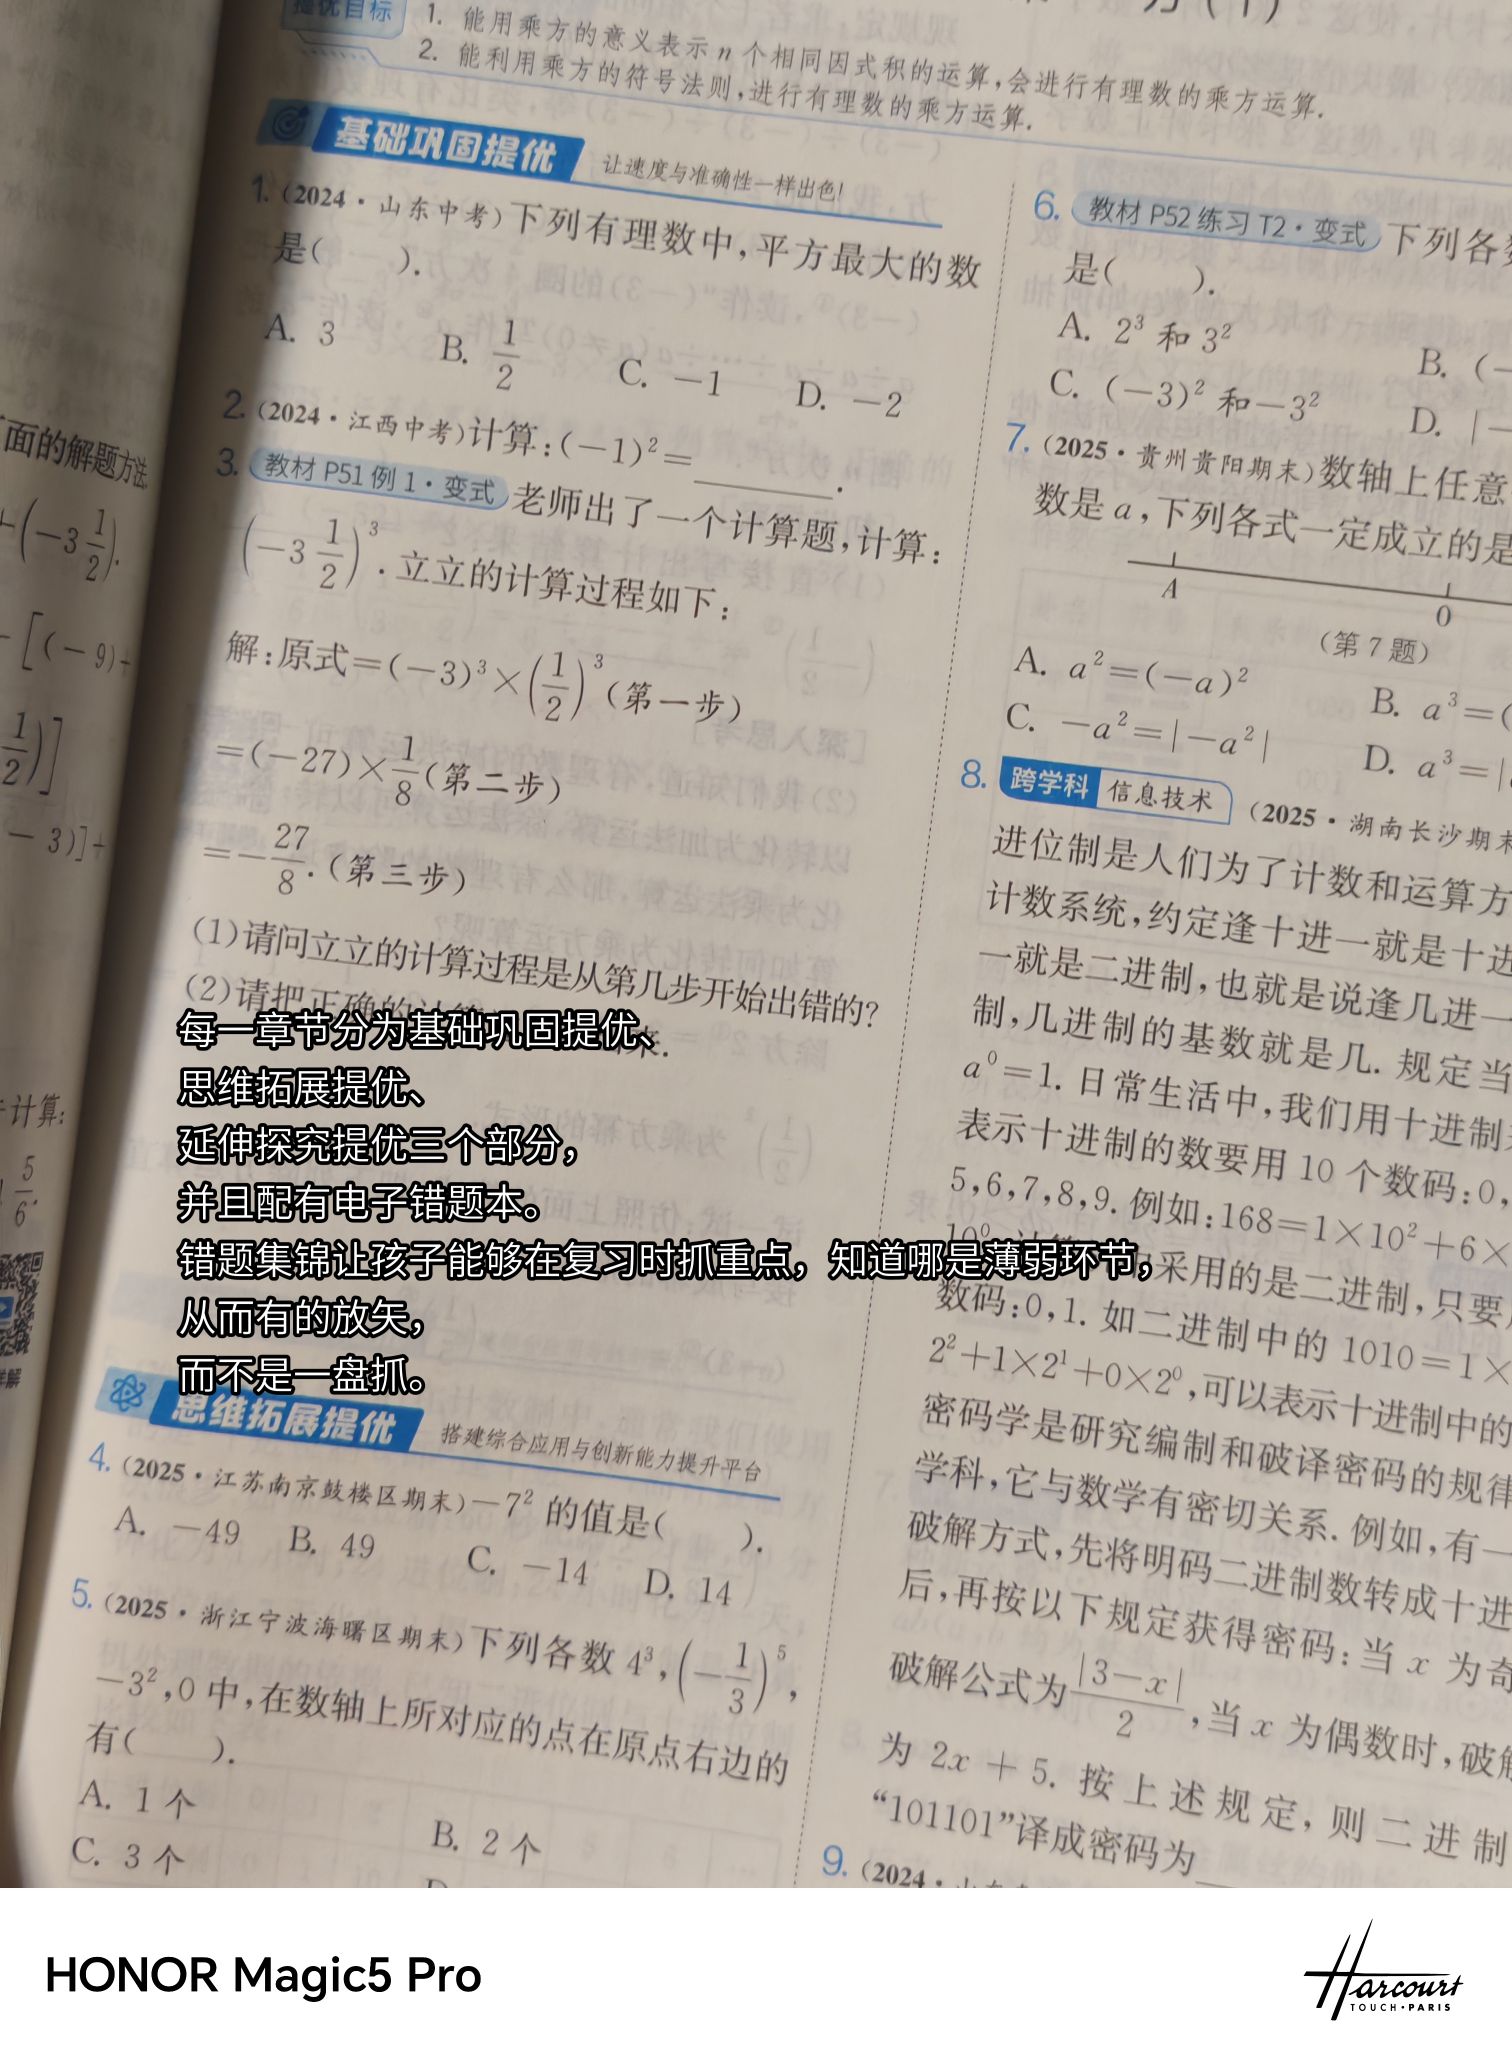 提优目标
1. 能用乘方的意义表示 n 个相同因式积的运算,会进行有理数的乘方运算.
2. 能利用乘方的符号法则,进行有理数的乘方运算.
基础巩固提优 让速度与准确性一样出色!
1. (2024·山东中考)下列有理数中,平方最大的数
是( ).
A. 3 B. 1/2 C. −1 D. −2
2. (2024·江西中考)计算:(−1)²=______.
3. 教材 P51 例 1·变式 老师出了一个计算题,计算:
(−3 1/2)³. 立立的计算过程如下:
解:原式=(−3)³×(1/2)³(第一步)
=(−27)×1/8(第二步)
=−27/8.(第三步)
(1)请问立立的计算过程是从第几步开始出错的?
(2)请把正确的
来.
每一章节分为基础巩固提优、
思维拓展提优、
延伸探究提优三个部分,
并且配有电子错题本。
错题集锦让孩子能够在复习时抓重点,知道哪是薄弱环节,
从而有的放矢,
而不是一盘抓。
思维拓展提优 搭建综合应用与创新能力提升平台
4. (2025·江苏南京鼓楼区期末)−7² 的值是( ).
A. −49 B. 49 C. −14 D. 14
5. (2025·浙江宁波海曙区期末)下列各数 4³,(−1/3)⁵,
−3²,0 中,在数轴上所对应的点在原点右边的
有( ).
A. 1 个 B. 2 个
C. 3 个
6. 教材 P52 练习 T2·变式 下列各
是( ).
A. 2³ 和 3² B. (−
C. (−3)² 和−3² D. |−
7. (2025·贵州贵阳期末)数轴上任意
数是 a,下列各式一定成立的是
A 0
(第 7 题)
A. a²=(−a)² B. a³=(
C. −a²=|−a²| D. a³=|
8. 跨学科 信息技术 (2025·湖南长沙期末
进位制是人们为了计数和运算方
计数系统,约定逢十进一就是十进
一就是二进制,也就是说逢几进一
制,几进制的基数就是几. 规定当
a⁰=1. 日常生活中,我们用十进制
表示十进制的数要用 10 个数码:0,
5,6,7,8,9. 例如:168=1×10²+6×
10⁰
采用的是二进制,只要
数码:0,1. 如二进制中的 1010=1×
2²+1×2¹+0×2⁰,可以表示十进制中的
密码学是研究编制和破译密码的规律
学科,它与数学有密切关系. 例如,有一
破解方式,先将明码二进制数转成十进
后,再按以下规定获得密码:当 x 为奇
破解公式为|3−x|/2,当 x 为偶数时,破解
为 2x + 5. 按上述规定,则二进制
“101101”译成密码为
9. (2024·山东
面的解题方法
(−3 1/2).
[(−9)÷
1/2)]
−3)]÷
计算:
5/6.
详解
HONOR Magic5 Pro
Harcourt
TOUCH·PARIS